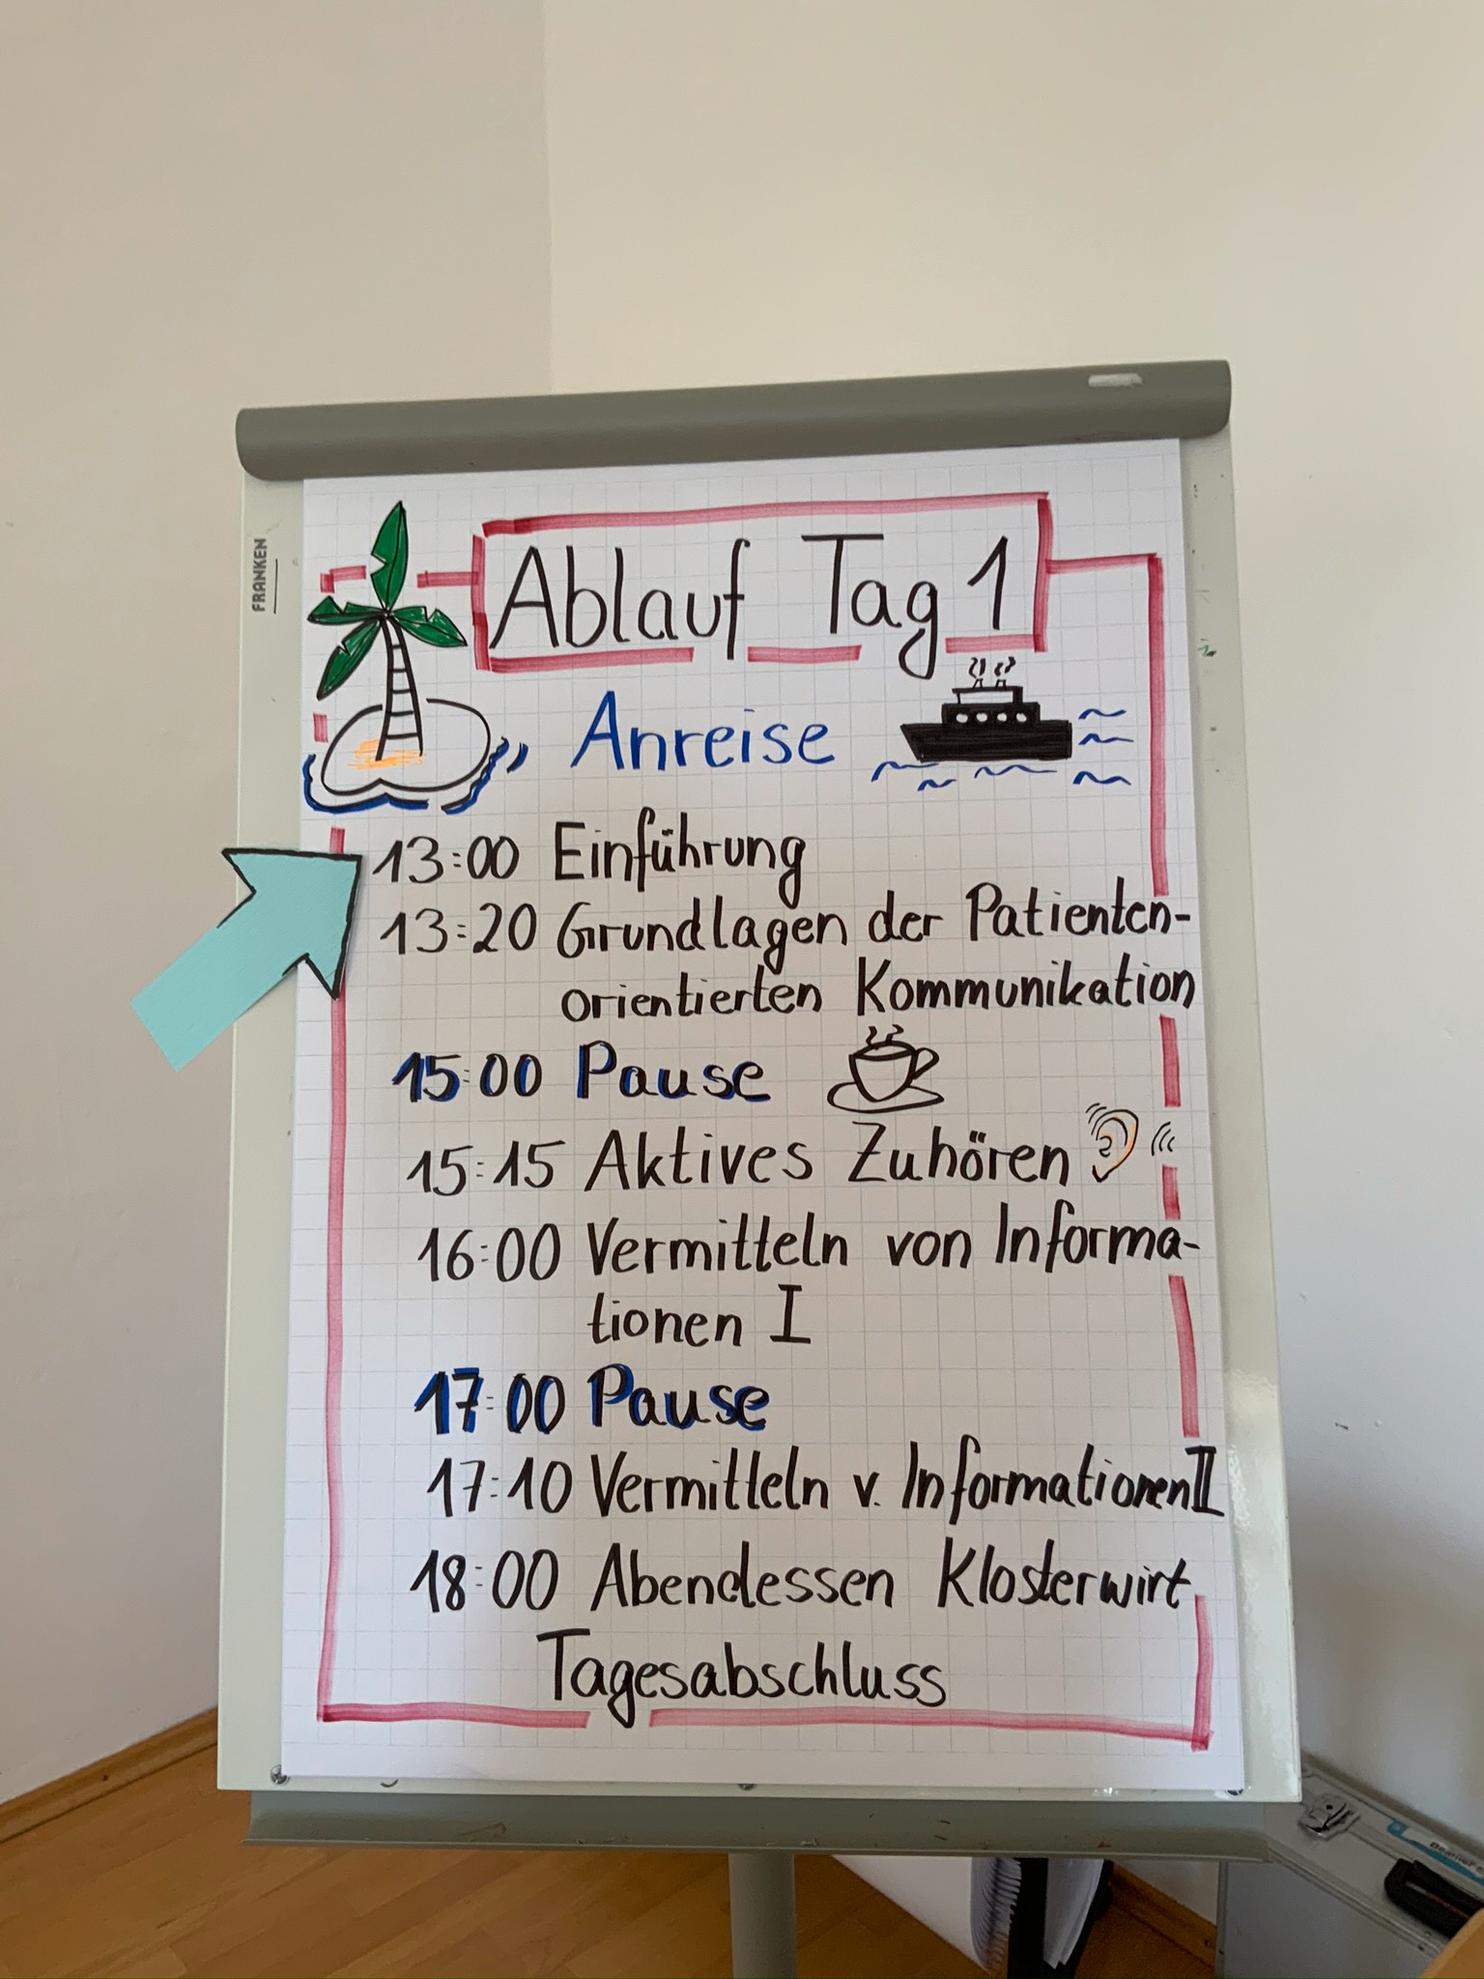 FRANKEN
Ablauf Tag 1
Anreise
13:00 Einführung
13:20 Grundlagen der Patienten-
orientierten Kommunikation
15:00 Pause
15:15 Aktives Zuhören
16:00 Vermitteln von Informa-
tionen I
17:00 Pause
17:10 Vermitteln v. Informationen II
18:00 Abendessen Klosterwirt
Tagesabschluss